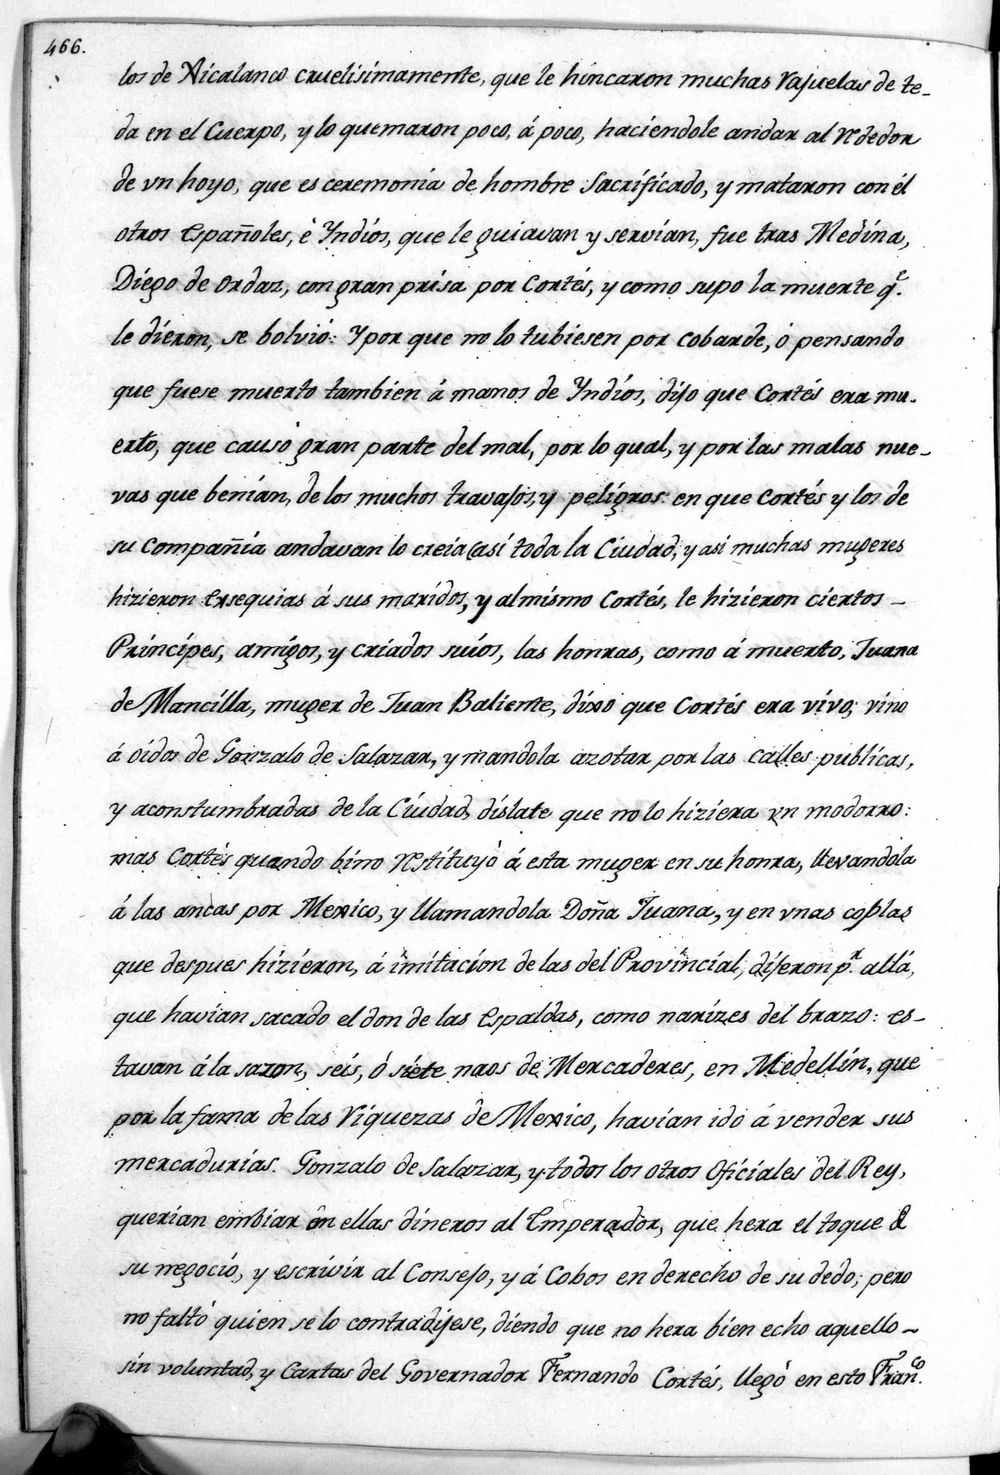 466.
los de Xicalanco cruelisimamente, que le hincaron muchas rajuelas de te-
da en el Cuerpo, y lo quemaron poco, á poco, haciendole andar al rededor
de vn hoyo, que es ceremonia de hombre Sacrificado, y mataron con él
otros Españoles, è Yndios, que le guiavan y servian, fue tras Medina,
Diego de Ordaz, con gran prisa por Cortés, y como supo la muerte q.e
le dieron, se bolvió: Y por que no lo tubiesen por cobarde, ó pensando
que fuese muerto tambien á manos de Yndios, dijo que Cortés era mu-
erto, que causó gran parte del mal, por lo qual, y por las malas nue-
vas que benian, de los muchos travajos, y peligros: en que Cortés y los de
su Compañia andavan lo creia casi toda la Ciudad; y asi muchas mugeres
hizieron exsequias á sus maridos, y al mismo Cortés, le hizieron ciertos -
Principes, amigos, y criados suios, las honras, como á muerto, Juana
de Mancilla, muger de Juan Baliente, dixo que Cortés era vivo; vino
á oidos de Gonzalo de Salazar, y mandola azotar por las calles publicas,
y aconstumbradas de la Ciudad, dislate que no lo hiziera vn modorro:
mas Cortés quando bino restituyó á esta muger en su honra, llevandola
á las ancas por Mexico, y llamandola Doña Juana, y en vnas coplas
que despues hizieron, á imitacion de las del Provincial, dijeron p.r allá,
que havian sacado el don de las espaldas, como narizes del brazo: es-
tavan á la sazon, seis, ó siete naos de Mercaderes, en Medellin, que
por la fama de las riquezas de Mexico, havian ido á vender sus
mercadurias. Gonzalo de Salazar, y todos los otros Oficiales del Rey,
querian embiar en ellas dineros al Emperador, que hera el toque de
su negocio, y escrivir al Consejo, y á Cobos en derecho de su dedo; pero
no faltó quien se lo contradijese, diendo que no hera bien echo aquello -
sin voluntad, y Cartas del Governador Fernando Cortés, llegó en esto Fran.co